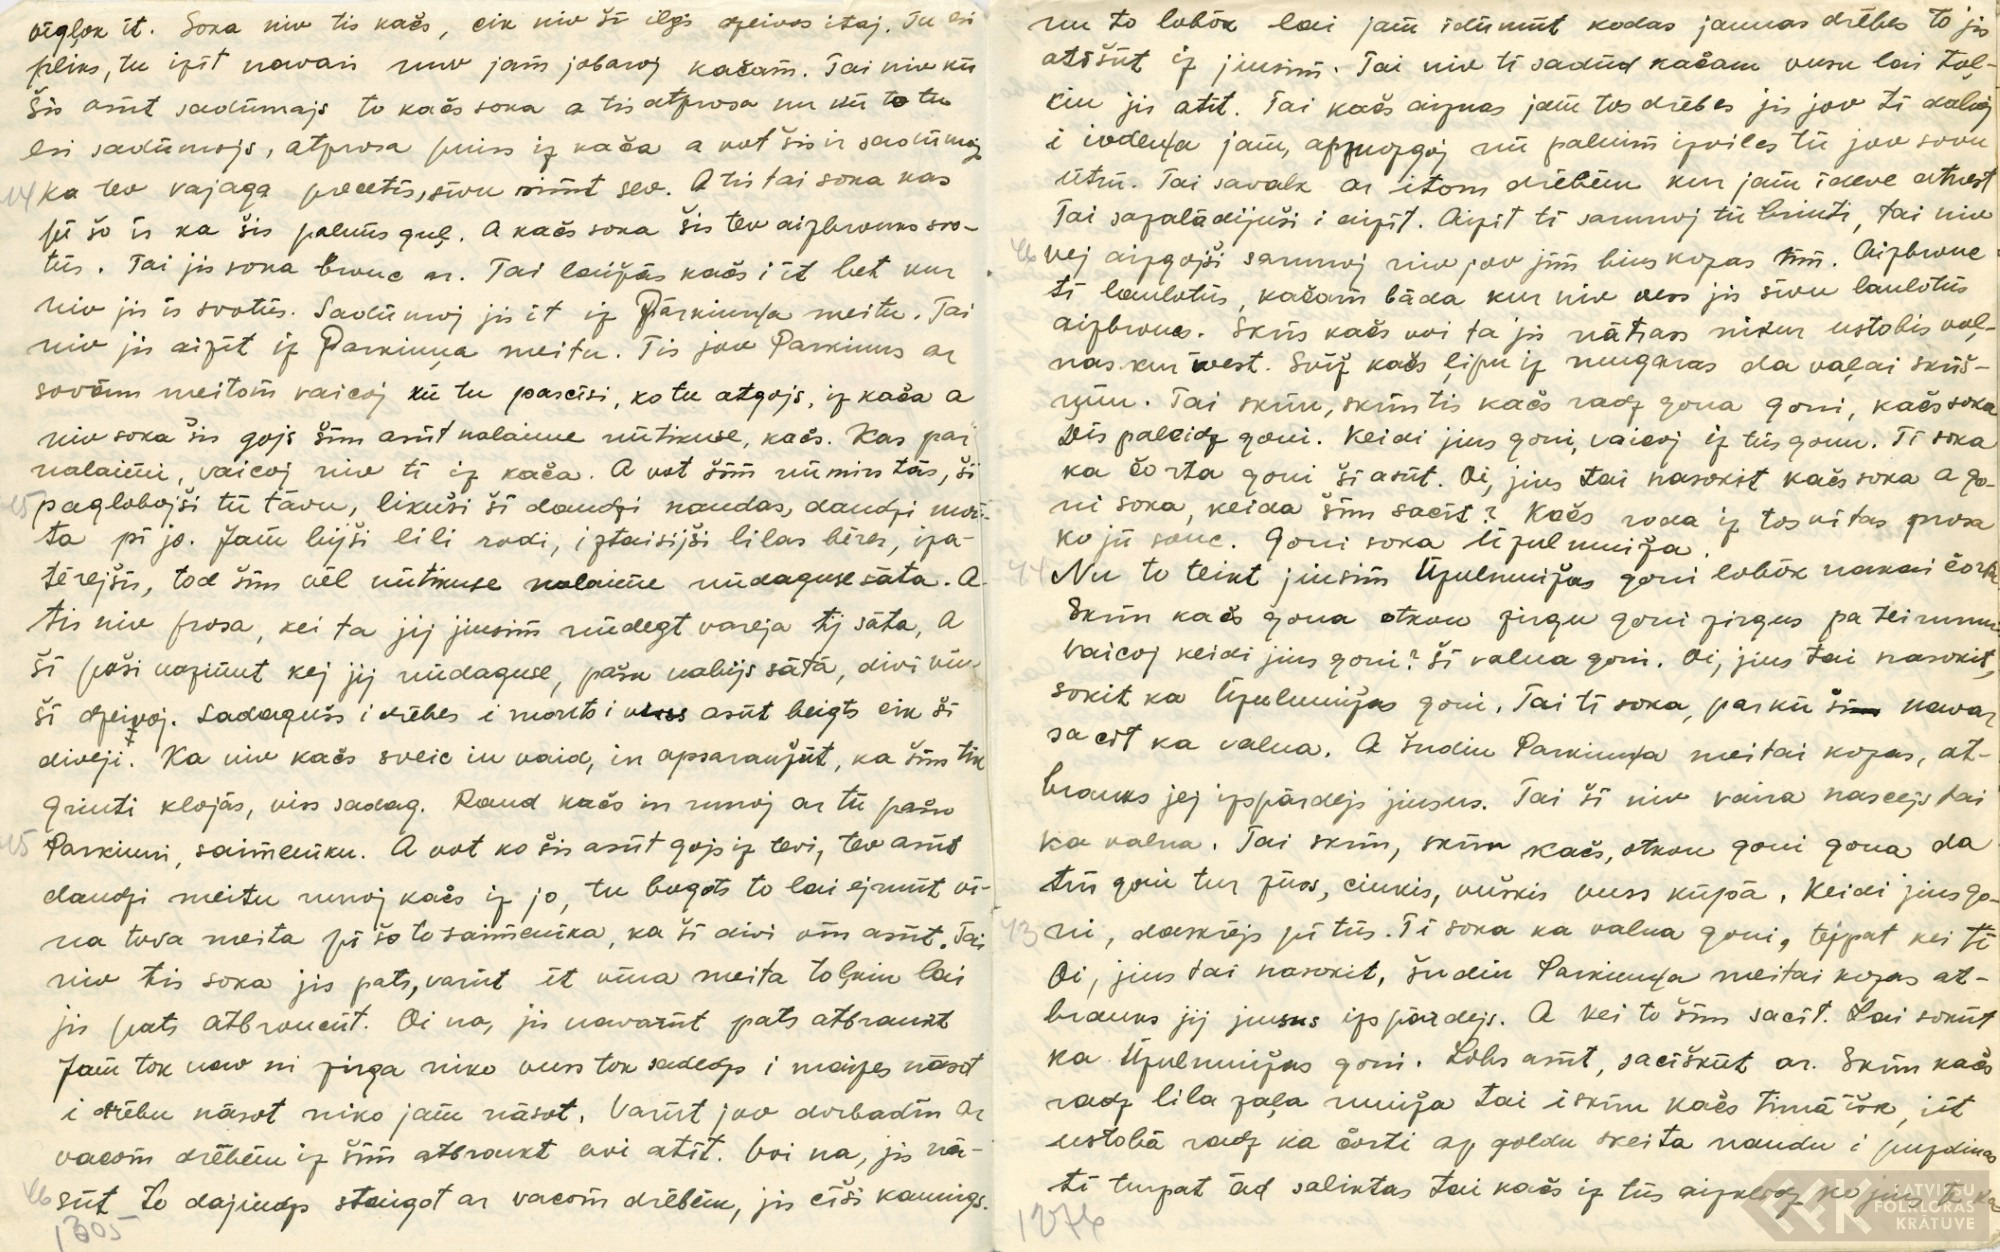 vīgļok īt. Soka niv tis kačs, cik niv šī ilgi dzeivos itaj. Tu esi
pliks, tu izīt navari niv jam jobaroj kačam. Tai niv kū
šis asūt sadūmojs to kačs soka a tis atprosa nu kū to tu
esi sadūmojs, atprosa puiss iz kača a vot šis ir sadūmojs
14 ka tev vajaga precētīs, sīvu ņimt sev. A tis tai soka kas
pi šo īs ka šis palnūs guļ. A kačs soka šis tev aizbrouks svo-
tūs. Tai jis soka brauc ar. Tai laižās kačs i īt bet kur
niv jis īs svotūs. Sadūmoj jis īt iz Pārkiuņa meitu. Tai
niv jis aizīt iz Parkiuņa meitu. Tis jov Parkiuns ar
sovom meitom vaicoj kū tu pascīsi, ko tu atgojs, iz kača a
niv soka šis gojs šim asūt nalaime nūtikuse, kačs. Kas par
nalaimi, vaicoj niv ti iz kača. A vot šim nūmirs tās, ši
15 paglobojši tū tāvu, likuši šī daudzi naudas, daudzi man-
ta pi jo. Jam bijši lili rodi, iztaisijši lilas bēres, iza-
tērejšis, tod šim vēl nūtikuse nalaime nūdaguse sāta. A
tis niv prosa, kei ta jej jiusim nūdegt vareja tej sāta, a
šī poši nazinut kej jij nūdaguse, pašu nabijs sātā, divi vin
šī dzeivoj. Sadagušs i drēbes i monts i viss asūt beigts cik šī
diveji. Ka niv kačs sveic iu vaid, in apsaraužūt, ka šim tik
griuti klojās, viss sadag. Raud kačs in runoj ar tū pašu
15 Parkiuni, saimeniku. A vot ko šis asūt gojs iz tevi, tev asūt
daudzi meitu runoj kačs iz jo, tu bogots to lai ejmūt vī-
na tova meita pi šo to saimenika, ka ši divi vin asūt. Tai
niv tis soka jis pats, varūt īt vina meita tolkin lai
jis pats atbroucūt. Oi na, jis navarūt pats atbraukt
Jam tok nav ni zirga niko vuss tok sadedzs i maizes nāsot
i drēbu nāsot niko jam nāsot. Varūt jov dorbadin ar
vacom drēbem iz šim atbraukt voi atīt. Voi na, jis nā-
46 sūt to dajiudzs staigot ar vacom drēbem, jis cīši kaunigs.
1305
nu to lobōk lai jam īdūmūt kodas jaunas drēbes to jis
atīšūt iz jiusim. Tai niv tī sadūd kačam vusu lai tol-
kiu jis atīt. Tai kačs aiznas jam tos drēbes jis jov tī dalicj
i īvdeņa jam, apmozgoj nū palnim izviles tū jov sovu
ūtru. Tai savalk ar itom drēbem kur jam īdeve atnest
Tai sazalādijuši i aizīt. Aizīt tī sarunoj tū briuti, tai niv
46 vej aizgojši sarunoj niv jov jim bius kozas tim. Aizbrouc
tī laulotūs, kačam bāda kur niv vess jis sīvu laulotūs
aizbrouc. Skrīs kačs voi ta jis nātrass nikur ustobis vol-
nas kur īvest. Svīž kačs ļipu iz mugoras da vaļai skriš-
niu. Tai skrīn, skrīn tis kačs radz gona goni, kačs soka
Dīs paleidz goni. Keidi jius goni, vaicoj iz tūs gonu. Tī soka
ka čorta goni šī asūt. Oi, jius tai nasokit kačs soka a go-
ni soka, keida šim sacīt? Kačs roda iz tos vitas prosa
ko jū souc. Goni soka Ūzulmuiža.
44 Nu to teikt jiusim Ūzulmuižas goni lobōk nakai čorta
Skrīn kačs gona otkon zirgu goni zirgus pa teirumu
vaicoj keidi jius goni? Šī valna goni. Oi, jius tai nasokit,
sokit ka Ūzulmuižas goni. Tai tī soka, par kū šim navar
sacīt ka valna. A šudiņ Parkiuņa meitai kozas, at-
brauks jej izspārdejs jiusus. Tai šī niv vaira nasceja tai
ka valna. Tai skrin, skrin kačs, otkon goni gona da
tūs goni tur zūss, ciukis, vuškis vuss kūpā. Keidi jius go-
43 ni, daskrējs pi tūs. Tī soka ka valna goni, tejpat kei tī
Oi, jius tai nasokit, šudiņ Parkiuņa meitai kozas at-
brauks jij jiusus izspārdejs. A kei to šim sacīt. Lai sokūt
ka Ūzulmuižas goni. Lobs asūt, sacīškūt ar. Skrīn kačs
radz lila zaļa muiža tai īskrīn kačs timā īšk, īīt
ustobā radz ka čorti ap goldu skeita naudu i puzdinas
tī turpat ād saliktas tai kačs iz tūs
1276
LATVIEŠU
FOLKLORAS
KRĀTUVE